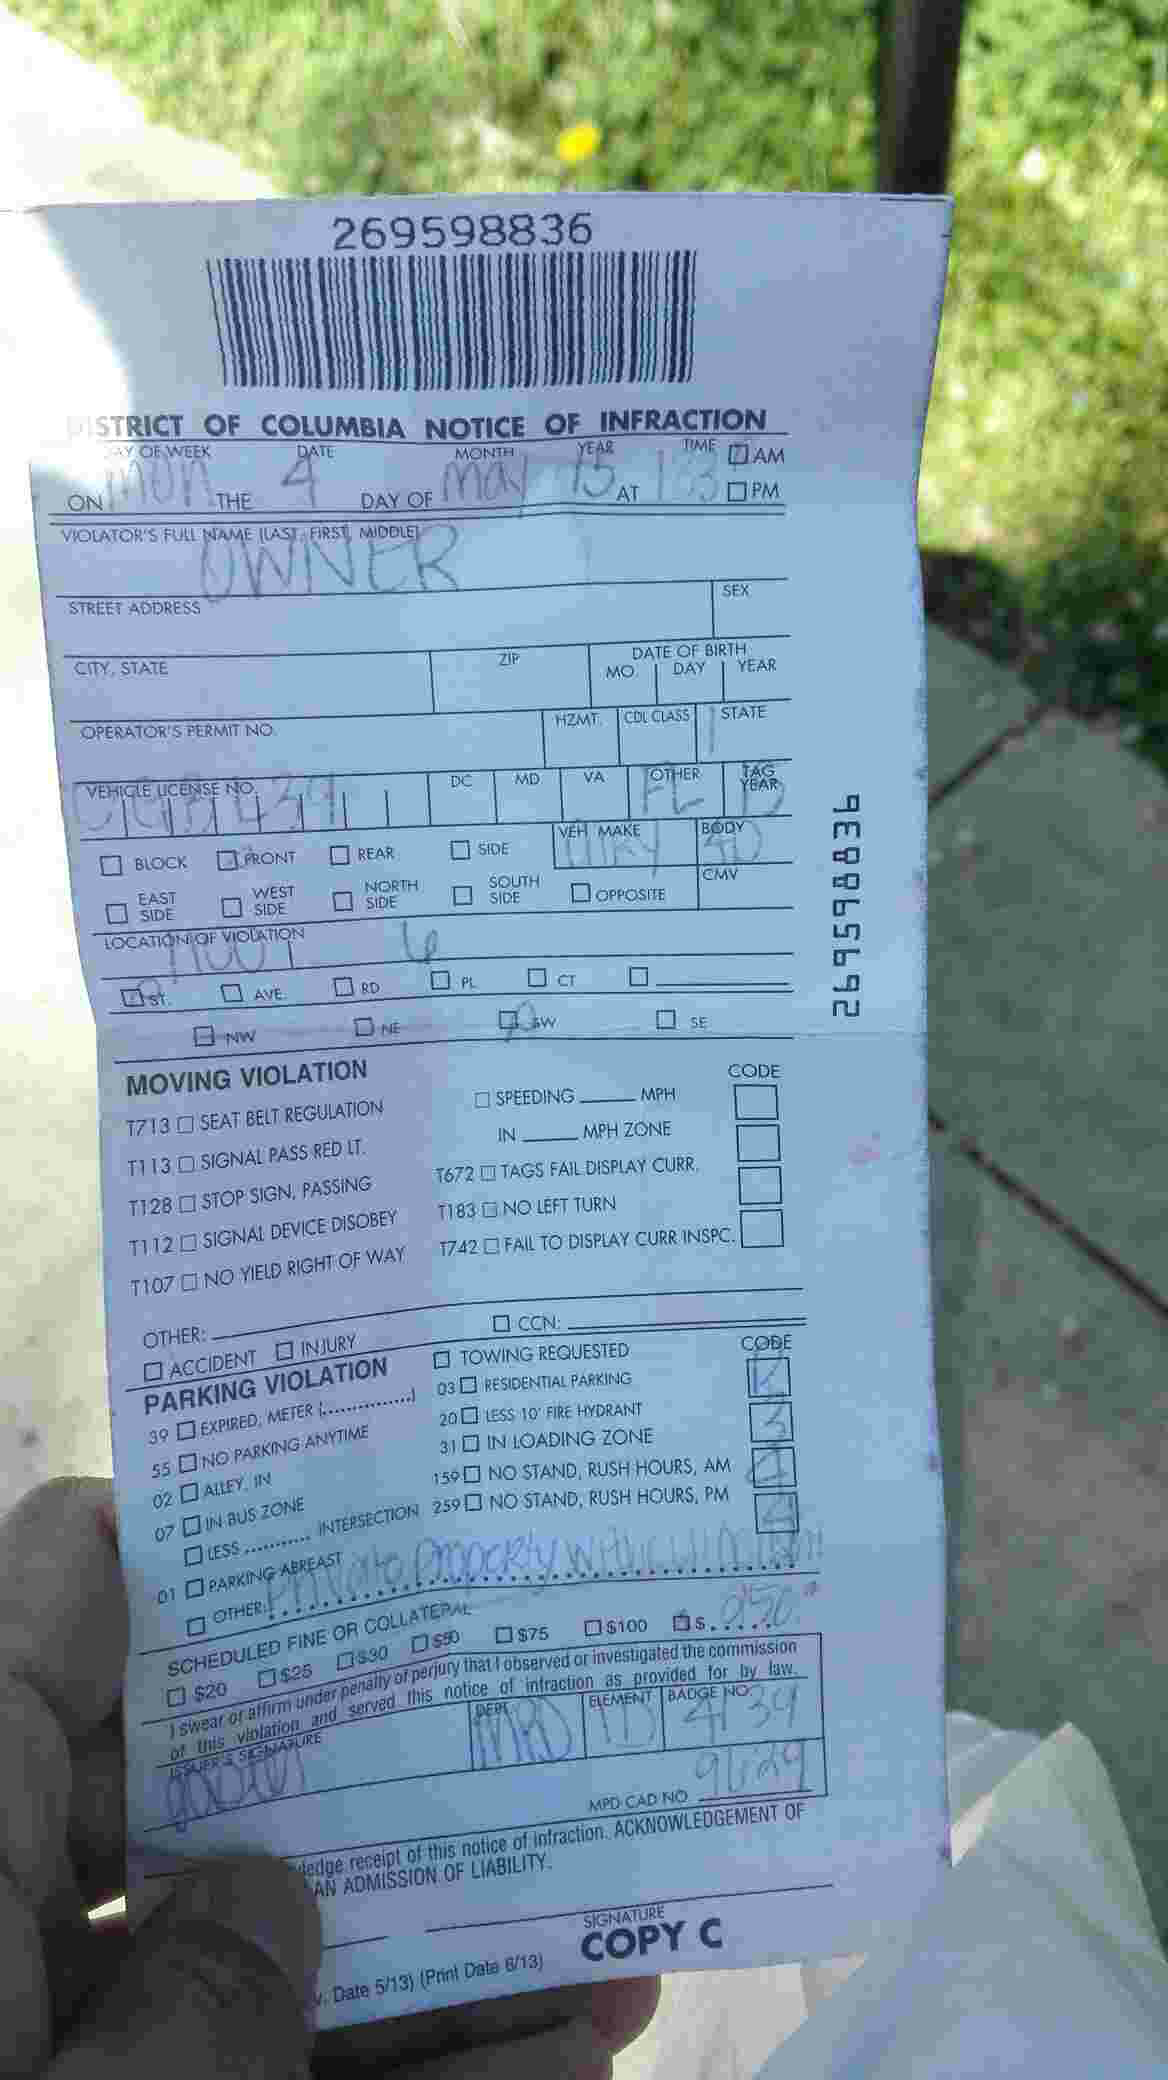 269598836
DISTRICT OF COLUMBIA NOTICE OF INFRACTION
DAY OF WEEK DATE MONTH YEAR TIME AM
ON Mon THE 4 DAY OF May 15 AT PM
VIOLATOR'S FULL NAME (LAST, FIRST, MIDDLE)
OWNER
STREET ADDRESS SEX
CITY, STATE ZIP DATE OF BIRTH
MO. DAY YEAR
OPERATOR'S PERMIT NO. HZMT. CDL CLASS STATE
VEHICLE LICENSE NO. DC MD VA OTHER TAG YEAR
FL 15
BLOCK FRONT REAR SIDE VEH MAKE BODY
4D
EAST SIDE WEST SIDE NORTH SIDE SOUTH SIDE OPPOSITE CMV
LOCATION OF VIOLATION
ST. AVE. RD PL CT
NW NE SW SE
269598836
MOVING VIOLATION CODE
T713 SEAT BELT REGULATION SPEEDING MPH
T113 SIGNAL PASS RED LT. IN MPH ZONE
T128 STOP SIGN, PASSING T672 TAGS FAIL DISPLAY CURR.
T112 SIGNAL DEVICE DISOBEY T183 NO LEFT TURN
T107 NO YIELD RIGHT OF WAY T742 FAIL TO DISPLAY CURR INSPC.
OTHER: CCN:
ACCIDENT INJURY TOWING REQUESTED CODE
PARKING VIOLATION 03 RESIDENTIAL PARKING
39 EXPIRED, METER 20 LESS 10' FIRE HYDRANT
55 NO PARKING ANYTIME 31 IN LOADING ZONE
02 ALLEY, IN 159 NO STAND, RUSH HOURS, AM
07 IN BUS ZONE 259 NO STAND, RUSH HOURS, PM
LESS .......... INTERSECTION
01 PARKING ABREAST
OTHER: Private property
SCHEDULED FINE OR COLLATERAL
$20 $25 $30 $50 $75 $100 $ 250
I swear or affirm under penalty of perjury that I observed or investigated the commission
of this violation and served this notice of infraction as provided for by law.
ISSUER'S SIGNATURE DEPT. ELEMENT BADGE NO.
MPD 1D 4134
MPD CAD NO
ledge receipt of this notice of infraction. ACKNOWLEDGEMENT OF
AN ADMISSION OF LIABILITY.
SIGNATURE
COPY C
v. Date 5/13) (Print Date 6/13)